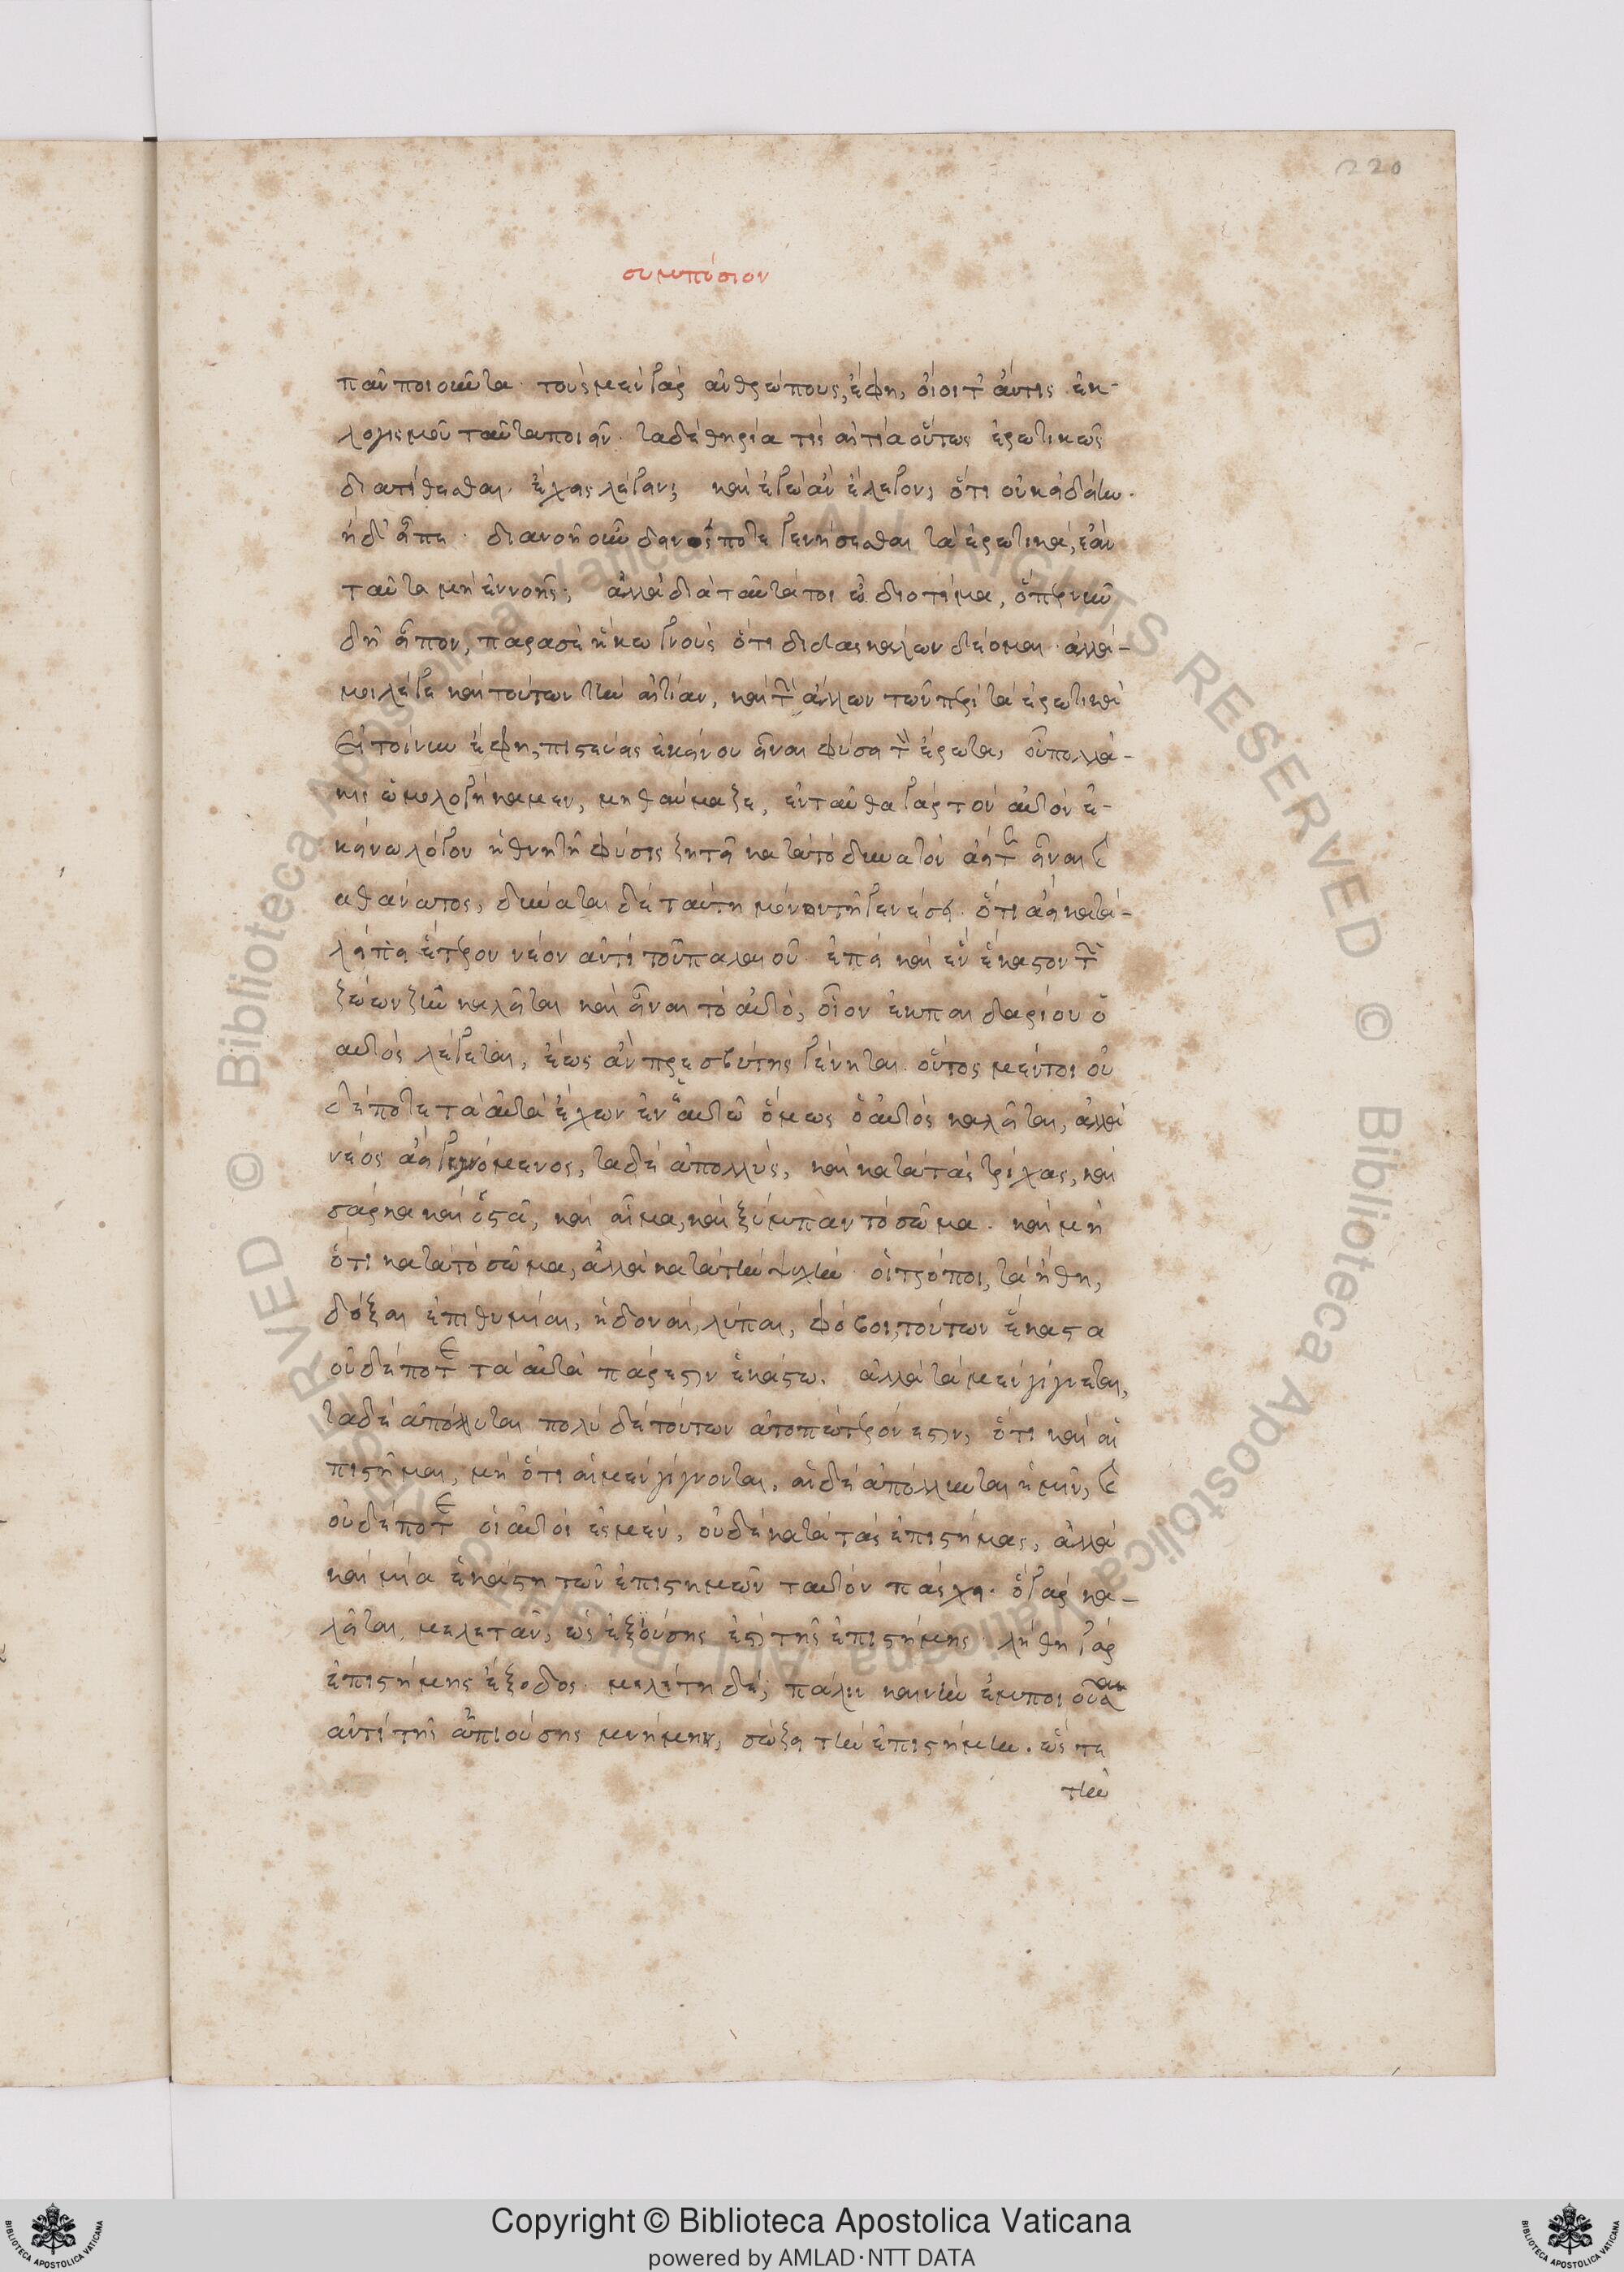 220
συμπόσιον
πᾶν ποιοῦντα. τοὺς μὲν γὰρ ἀνθρώπους, ἔφη, οἴοιτ' ἄν τις ἐκ-
λογισμοῦ ταῦτα ποιεῖν. τὰ δὲ θηρία τίς αἰτία οὕτως ἐρωτικῶς
διατίθεσθαι. ἔχεις λέγειν; καὶ ἐγὼ αὖ ἔλεγον, ὅτι οὐκ εἰδείην.
ἡ δ' εἶπε. διανοῇ οὖν δεινός ποτε γενήσεσθαι τὰ ἐρωτικὰ, ἐὰν
ταῦτα μὴ ἐννοῇς; ἀλλὰ διὰ ταῦτά τοι ὦ διοτίμα, ὅπερ νῦν
δὴ εἶπον, παρὰ σὲ ἥκω γνοὺς ὅτι διδασκάλων δέομαι. ἀλλά-
μοι λέγε καὶ τούτων τὴν αἰτίαν, καὶ τῶν ἄλλων τῶν περὶ τὰ ἐρωτικὰ
εἰ τοίνυν ἔφη, πιστεύεις ἐκείνου εἶναι φύσει τὸν ἔρωτα, οὗ πολλά-
κις ὡμολογήκαμεν, μὴ θαύμαζε, ἐνταῦθα γὰρ τὸν αὐτὸν ἐ-
κείνω λόγον ἡ θνητὴ φύσις ζητεῖ κατὰ τὸ δυνατὸν ἀεί τε εἶναι καὶ
ἀθάνατος, δύναται δὲ ταύτη μόνον τῇ γενέσει. ὅτι ἀεὶ κατα-
λείπει ἕτερον νέον ἀντὶ τοῦ παλαιοῦ. ἐπεὶ καὶ ἐν ἕκαστον τῶν
ζώων ζῆν καλεῖται καὶ εἶναι τὸ αὐτό, οἷον ἐκ παιδαρίου ὁ
αὐτὸς λέγεται, ἕως ἂν πρεσβύτης γένηται. οὗτος μέντοι οὐ
δέποτε τὰ αὐτὰ ἔχων ἐν αὑτῶ ὅμως ὁ αὐτὸς καλεῖται, ἀλλὰ
νέος ἀεὶ γιγνόμενος, τὰ δὲ ἀπολλὺς, καὶ κατὰ τὰς τρίχας, καὶ
σάρκα καὶ ὀστᾶ, καὶ αἷμα, καὶ ξύμπαν τὸ σῶμα. καὶ μὴ
ὅτι κατὰ τὸ σῶμα, ἀλλὰ κατὰ τὴν ψυχὴν. οἱ τρόποι, τὰ ἤθη,
δόξαι ἐπιθυμίαι, ἡδοναὶ, λύπαι, φόβοι, τούτων ἕκαστα
οὐδέποτε τὰ αὐτὰ πάρεστιν ἑκάστω. ἀλλὰ τὰ μὲν γίγνεται,
τὰ δὲ ἀπόλυται πολὺ δὲ τούτων ἀτοπώτερόν ἐστιν, ὅτι καὶ αἱ
πιστῆμαι, μὴ ὅτι αἱ μὲν γίγνονται. αἱ δὲ ἀπόλλυνται ἡμῖν, καὶ
οὐδέποτε οἱ αὐτοί ἐσμεν, οὐδὲ κατὰ τὰς ἐπιστήμας, ἀλλὰ
καὶ μία ἑκάστη τῶν ἐπιστημῶν ταυτὸν πάσχει. ὃ γὰρ κα-
λεῖται μελετᾶν, ὡς ἐξιούσης ἐστὶ τῆς ἐπιστήμης. λήθη γὰρ
ἐπιστήμης ἔξοδος. μελέτη δὲ, πάλιν καινὴν ἐμποιοῦσα
ἀντὶ τῆς ἀπιούσης μνήμην, σώζει τὴν ἐπιστήμην. ὥς τε
τὴν
Copyright © Biblioteca Apostolica Vaticana
powered by AMLAD·NTT DATA